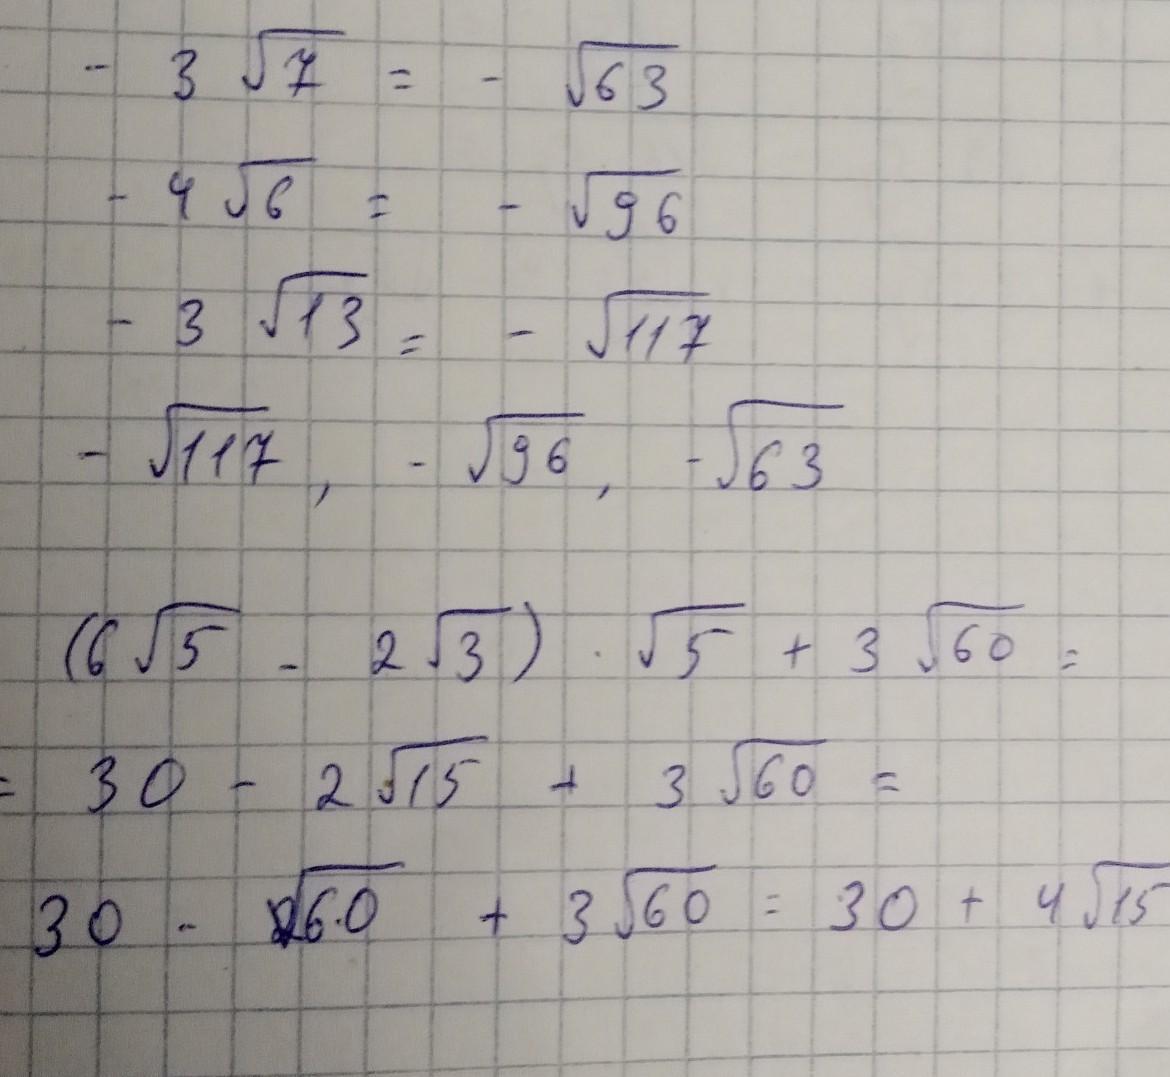 - 3 √7 = - √63
- 4 √6 = - √96
- 3 √13 = - √117
- √117 , - √96 , - √63
(6 √5 - 2 √3) · √5 + 3 √60 =
= 30 - 2 √15 + 3 √60 =
30 - √60 + 3 √60 = 30 + 4 √15